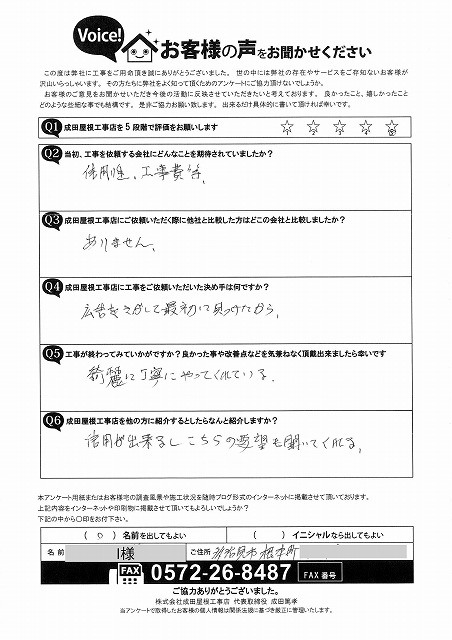 Voice!
お客様の声をお聞かせください
この度は弊社に工事をご用命頂き誠にありがとうございました。 世の中には弊社の存在やサービスをご存知ないお客様が
沢山いらっしゃいます。その方たちに弊社をよく知って頂くためのアンケートにご協力頂けないでしょうか。
お客様のご意見をお聞かせいただき今後の活動に反映させていただきたいと考えております。 良かったこと、嬉しかったこと
どのような些細な事でも結構です。 是非ご協力お願い致します。 出来るだけ具体的に書いて頂ければ幸いです。
Q1 成田屋根工事店を5段階で評価をお願いします
Q2 当初、工事を依頼する会社にどんなことを期待されていましたか?
信用性、工事費等、
Q3 成田屋根工事店にご依頼いただく際に他社と比較した方はどこの会社と比較しましたか?
ありません、
Q4 成田屋根工事店に工事をご依頼いただいた決め手は何ですか?
広告をさがして最初に見つけたから、
Q5 工事が終わってみていかがですか?良かった事や改善点などを気兼ねなく頂戴出来ましたら幸いです
綺麗に丁寧にやってくれている。
Q6 成田屋根工事店を他の方に紹介するとしたらなんと紹介しますか?
信用が出来るし こちらの要望も聞いてくれる。
本アンケート用紙またはお客様宅の調査風景や施工状況を随時ブログ形式のインターネットに掲載させて頂いております。
上記内容をインターネットや印刷物に掲載させて頂いてもよろしいでしょうか?
下記の中から〇印をお付下さい。
( 〇 ) 名前を出してもよい ( ) イニシャルなら出してもよい
名 前 I様 ご住所 多治見市 根本町
FAX 0572-26-8487 FAX 番号
ご協力ありがとうございました。
株式会社成田屋根工事店 代表取締役 成田篤孝
当アンケートで取得したお客様の個人情報は関係法規に基づき厳正に管理いたします。